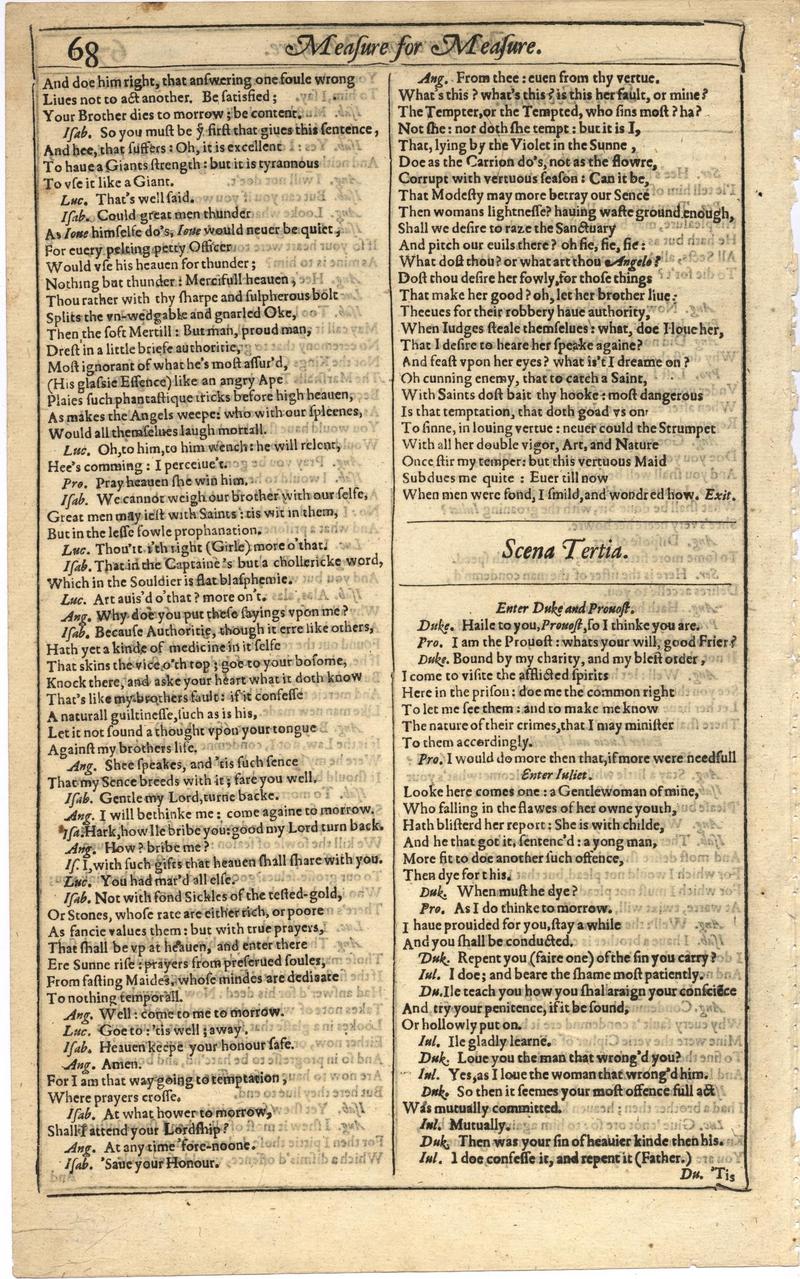 68
Meaſure for Meaſure.
And doe him right, that anſwering one foule wrong
Liues not to act another. Be ſatisfied;
Your Brother dies to morrow; be content.
Iſab. So you muſt be ẙ firſt that giues this ſentence,
And hee, that ſuffers: Oh, it is excellent
To haue a Giants ſtrength: but it is tyrannous
To vſe it like a Giant.
Luc. That's well ſaid.
Iſab. Could great men thunder
As Ioue himſelfe do's, Ioue would neuer be quiet,
For euery pelting petty Officer
Would vſe his heauen for thunder;
Nothing but thunder: Mercifull heauen,
Thou rather with thy ſharpe and ſulpherous bolt
Splits the vn-wedgable and gnarled Oke,
Then the ſoft Mertill: But man, proud man,
Dreſt in a little briefe authoritie,
Moſt ignorant of what he's moſt aſſur'd,
(His glaſſie Eſſence) like an angry Ape
Plaies ſuch phantaſtique tricks before high heauen,
As makes the Angels weepe: who with our ſpleenes,
Would all themſelues laugh mortall.
Luc. Oh, to him, to him wench: he will relent,
Hee's comming: I perceiue't.
Pro. Pray heauen ſhe win him.
Iſab. We cannot weigh our brother with our ſelfe,
Great men may ieſt with Saints: tis wit in them,
But in the leſſe fowle prophanation.
Luc. Thou'rt i'th right (Girle) more o'that.
Iſab. That in the Captaine's but a chollericke word,
Which in the Souldier is flat blaſphemie.
Luc. Art auis'd o'that? more on't.
Ang. Why doe you put theſe ſayings vpon me?
Iſab. Becauſe Authoritie, though it erre like others,
Hath yet a kinde of medicine in it ſelfe
That skins the vice o'th top; goe to your boſome,
Knock there, and aske your heart what it doth know
That's like my brothers fault: if it confeſſe
A naturall guiltineſſe, ſuch as is his,
Let it not ſound a thought vpon your tongue
Againſt my brothers life.
Ang. Shee ſpeakes, and 'tis ſuch ſence
That my Sence breeds with it; fare you well.
Iſab. Gentle my Lord, turne backe.
Ang. I will bethinke me: come againe to morrow.
Iſa. Hark, how Ile bribe you: good my Lord turn back.
Ang. How? bribe me?
Iſ. I, with ſuch gifts that heauen ſhall ſhare with you.
Luc. You had mar'd all elſe.
Iſab. Not with fond Sickles of the teſted-gold,
Or Stones, whoſe rate are either rich, or poore
As fancie values them: but with true prayers,
That ſhall be vp at heauen, and enter there
Ere Sunne riſe: prayers from preſerued ſoules,
From faſting Maides, whoſe mindes are dedicate
To nothing temporall.
Ang. Well: come to me to morrow.
Luc. Goe to: 'tis well; away.
Iſab. Heauen keepe your honour ſafe.
Ang. Amen.
For I am that way going to temptation,
Where prayers croſſe.
Iſab. At what hower to morrow,
Shall I attend your Lordſhip?
Ang. At any time 'fore-noone.
Iſab. 'Saue your Honour.
Ang. From thee: euen from thy vertue.
What's this? what's this? is this her fault, or mine?
The Tempter, or the Tempted, who ſins moſt? ha?
Not ſhe: nor doth ſhe tempt: but it is I,
That, lying by the Violet in the Sunne,
Doe as the Carrion do's, not as the flowre,
Corrupt with vertuous ſeaſon: Can it be,
That Modeſty may more betray our Sence
Then womans lightneſſe? hauing waſte ground enough,
Shall we deſire to raze the Sanctuary
And pitch our euils there? oh fie, fie, fie:
What doſt thou? or what art thou Angelo?
Doſt thou deſire her fowly, for thoſe things
That make her good? oh, let her brother liue:
Theeues for their robbery haue authority,
When Iudges ſteale themſelues: what, doe I loue her,
That I deſire to heare her ſpeake againe?
And feaſt vpon her eyes? what is't I dreame on?
Oh cunning enemy, that to catch a Saint,
With Saints doſt bait thy hooke: moſt dangerous
Is that temptation, that doth goad vs on
To ſinne, in louing vertue: neuer could the Strumpet
With all her double vigor, Art, and Nature
Once ſtir my temper: but this vertuous Maid
Subdues me quite: Euer till now
When men were fond, I ſmild, and wondred how. Exit.
Scena Tertia.
Enter Duke and Prouoſt.
Duke. Haile to you, Prouoſt, ſo I thinke you are.
Pro. I am the Prouoſt: whats your will, good Frier?
Duke. Bound by my charity, and my bleſt order,
I come to viſite the afflicted ſpirits
Here in the priſon: doe me the common right
To let me ſee them: and to make me know
The nature of their crimes, that I may miniſter
To them accordingly.
Pro. I would do more then that, if more were needfull
Enter Iuliet.
Looke here comes one: a Gentlewoman of mine,
Who falling in the flawes of her owne youth,
Hath bliſterd her report: She is with childe,
And he that got it, ſentenc'd: a yong man,
More fit to doe another ſuch offence,
Then dye for this.
Duk. When muſt he dye?
Pro. As I do thinke to morrow.
I haue prouided for you, ſtay a while
And you ſhall be conducted.
Duk. Repent you (faire one) of the ſin you carry?
Iul. I doe; and beare the ſhame moſt patiently.
Du. Ile teach you how you ſhal araign your conſciẽce
And try your penitence, if it be ſound,
Or hollowly put on.
Iul. Ile gladly learne.
Duk. Loue you the man that wrong'd you?
Iul. Yes, as I loue the woman that wrong'd him.
Duk. So then it ſeemes your moſt offence full act
Was mutually committed.
Iul. Mutually.
Duk. Then was your ſin of heauier kinde then his.
Iul. I doe confeſſe it, and repent it (Father.)
Du. 'Tis